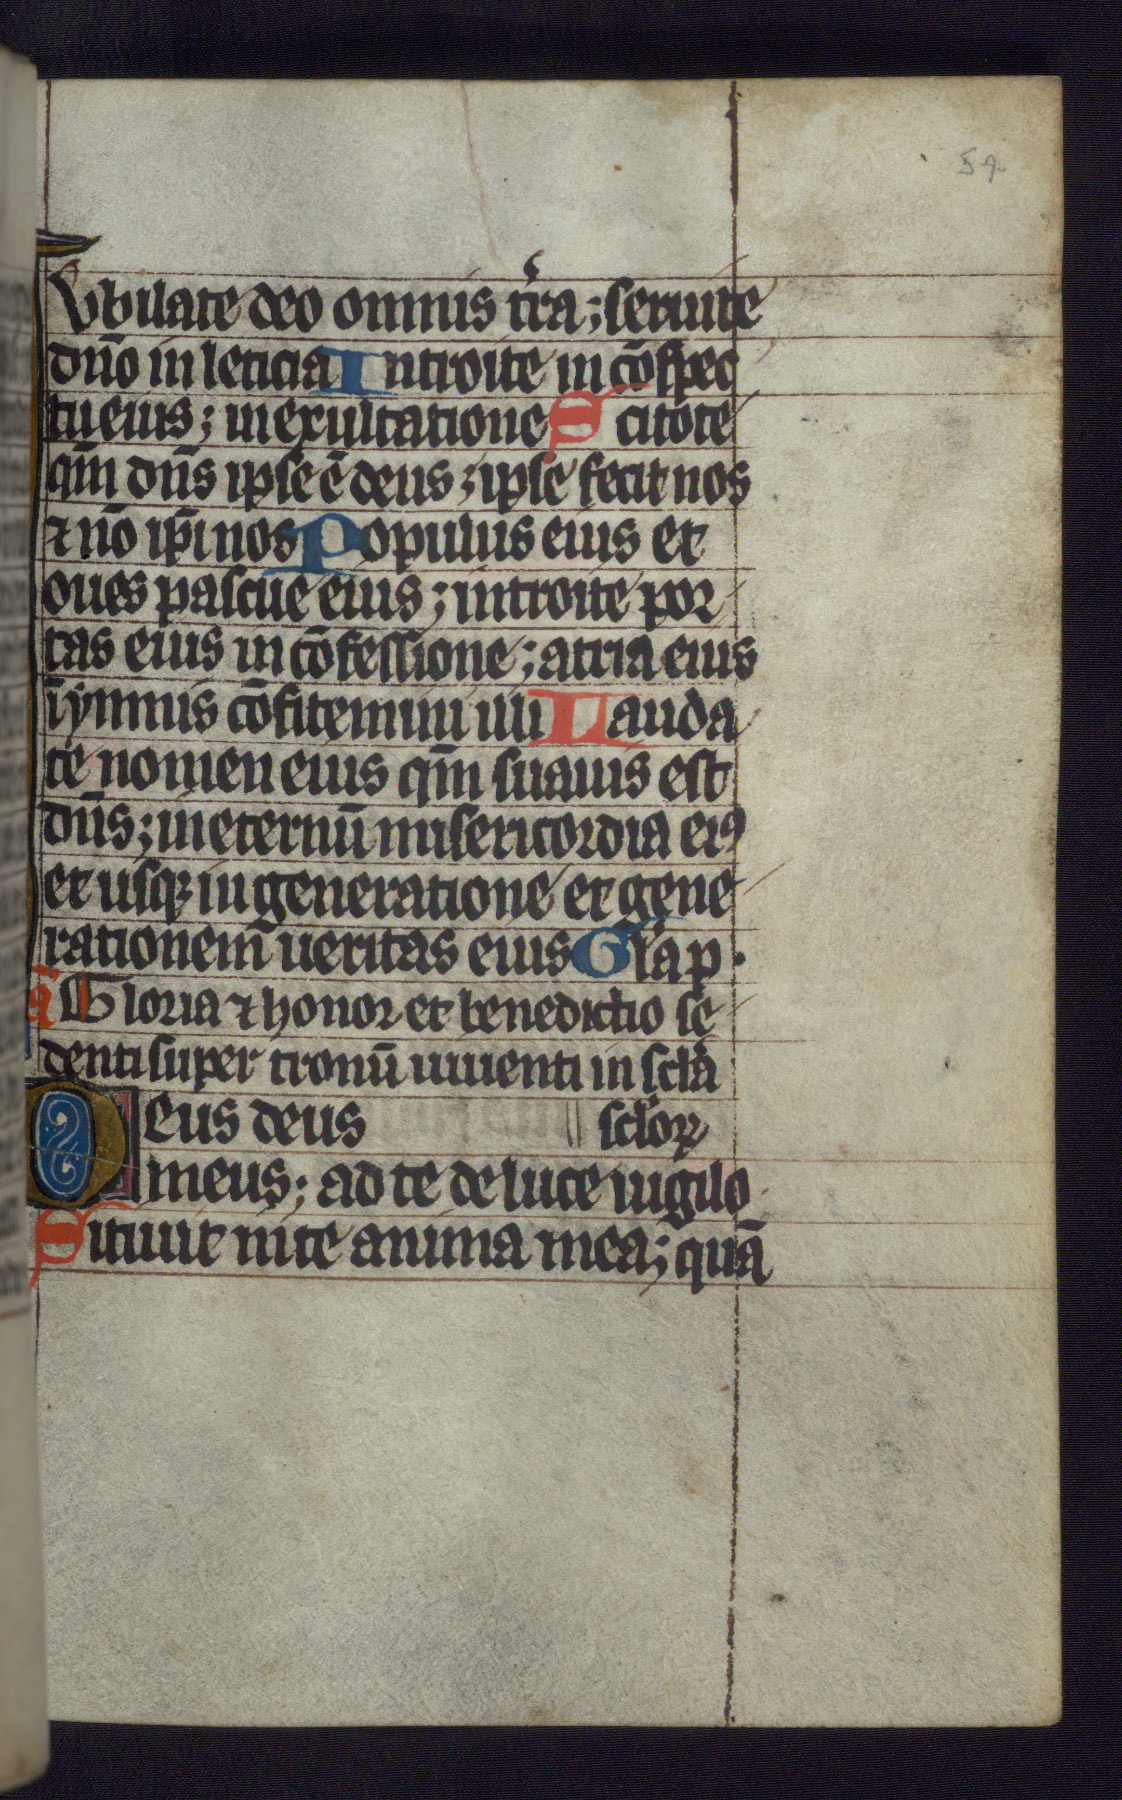 54
Jubilate deo omnis tr̄a; seruite
dn̄o in leticia Introite in cōspec
tu eius; in exultatione Scitote
qm̄ dn̄s ipse ē deus; ipse fecit nos
⁊ nō ip̄i nos Populus eius et
oues pascue eius; introite por
tas eius in cōfessione; atria eius
ȳmnis cōfitemini illi Lauda
te nomen eius qm̄ suauis est
dn̄s; in eternū misericordia eiꝯ
et usqꝫ in generatione et gene
rationem̄ ueritas eius Gl̄a p.
ā Gloria ⁊ honor et benedictio se
denti super tronū uiuenti in scl̄a
Deus deus scl̄oꝝ
meus; ad te de luce uigilo
Sitiuit in te anima mea; quā